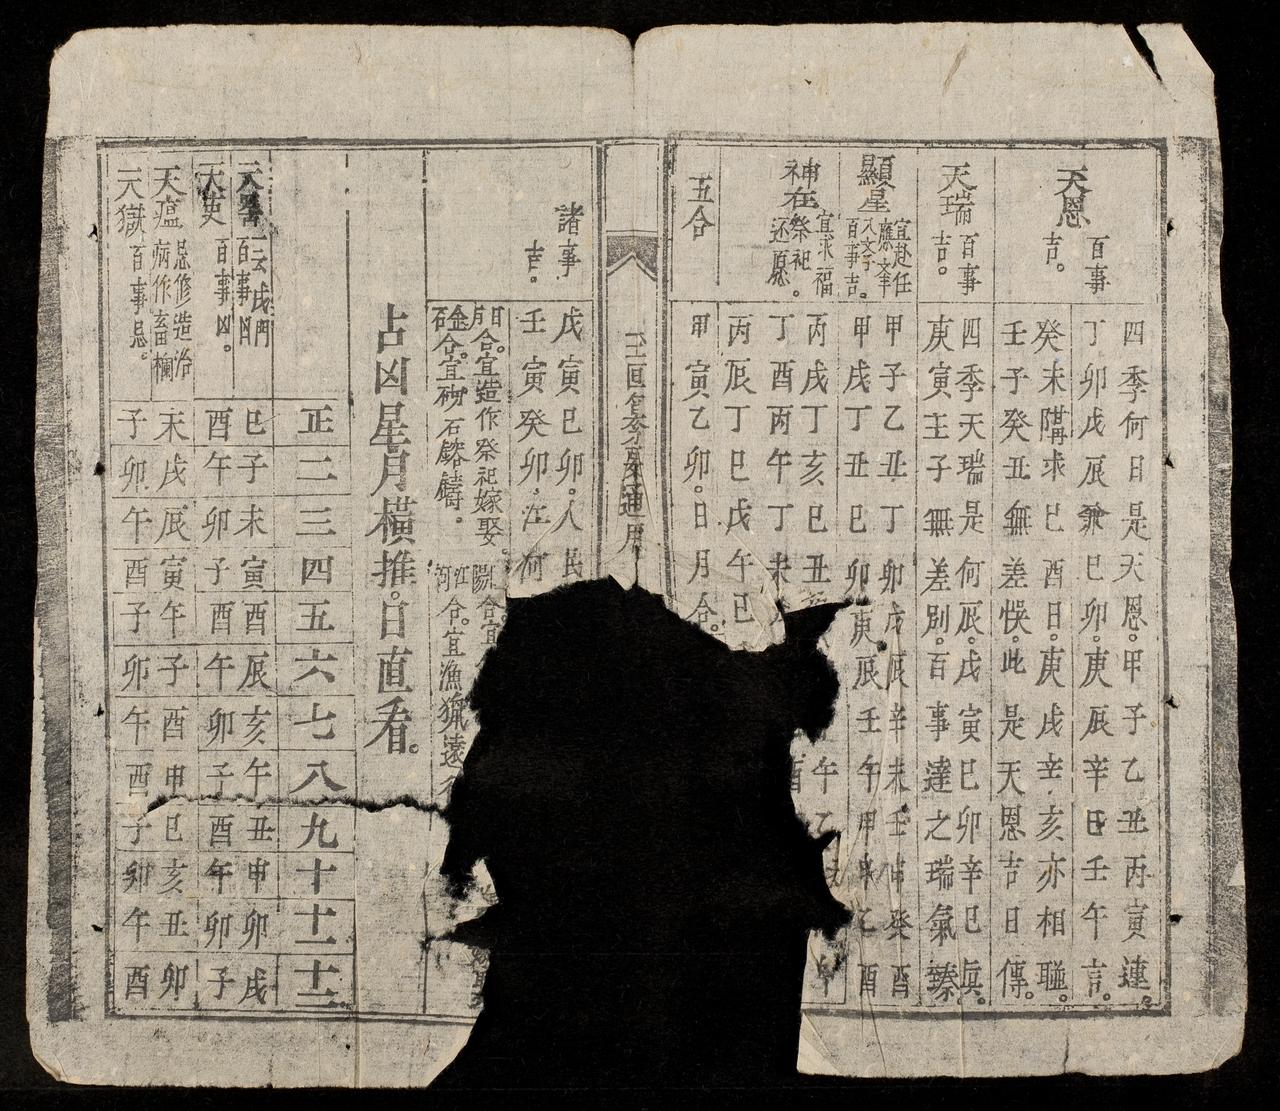 天恩
百事
吉。
四季何日是天恩。甲子乙丑丙寅連。
丁卯戊辰兼巳卯。庚辰辛巳壬午言。
癸未隔求巳酉日。庚戌辛亥亦相聯。
壬子癸丑無差悞。此是天恩吉日傳。
天瑞
百事
吉。
四季天瑞是何辰。戊寅巳卯辛巳真。
庚寅壬子無差別。百事達之瑞氣臻。
顯星
宜赴任
應
百事吉。
甲子乙丑丁卯戊辰辛未壬申癸酉
甲戌丁丑巳卯庚辰壬午甲申乙酉
神在
宜求福
祭祀
还愿。
丙戌丁亥巳丑
午乙
丁酉丙午丁未
酉
丙辰丁巳戊午巳
五合
甲寅乙卯。日月合。
通用
諸事
吉。
戊寅巳卯。人民
壬寅癸卯，江河
合。宜造作祭祀嫁娶。
陽合宜
合。宜砌石鎔鑄。
江河合。宜漁獵遠
占凶星月橫推。日直看。
正
二
三
四
五
六
七
八
九
十
十一
十二
百事凶
巳子未寅酉辰亥午丑申卯戌
百事凶。
酉午卯子酉午卯子酉午卯子
天瘟
忌修造治
病作畜欄
未戌辰寅午子酉申巳亥丑卯
天獄
百事忌。
子卯午酉子卯午酉子卯午酉